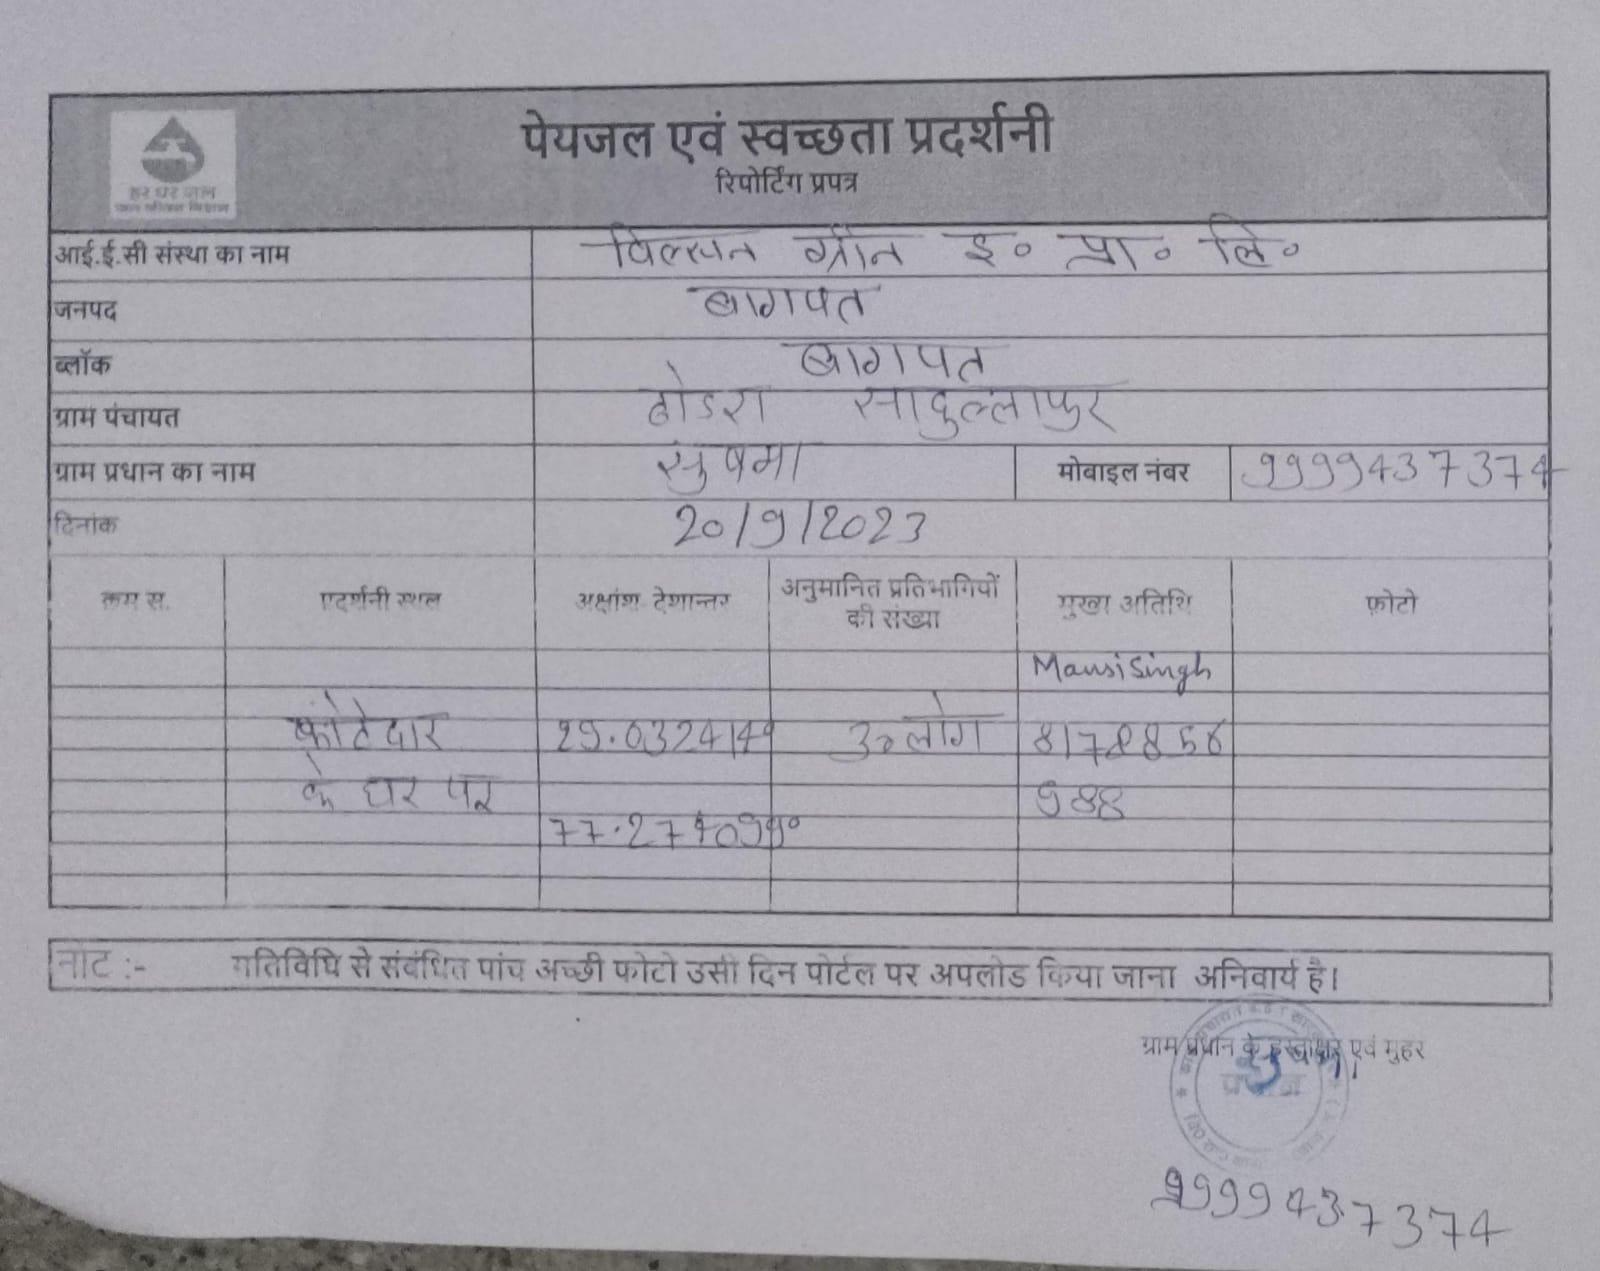 हर घर जल
जल जीवन मिशन
पेयजल एवं स्वच्छता प्रदर्शनी
रिपोर्टिंग प्रपत्र
आई.ई.सी संस्था का नाम विल्सन ग्रीन इ० प्रा० लि०
जनपद बागपत
ब्लॉक बागपत
ग्राम पंचायत ढोडरा सादुल्लापुर
ग्राम प्रधान का नाम सुषमा मोबाइल नंबर 9999437374
दिनांक 20/9/2023
क्रम स. प्रदर्शनी स्थल अक्षांश देशान्तर अनुमानित प्रतिभागियों की संख्या मुख्य अतिथि फ़ोटो
Mansi Singh
कोटेदार लोग
के घर पर 988
नोट :- गतिविधि से संबंधित पांच अच्छी फोटो उसी दिन पोर्टल पर अपलोड किया जाना अनिवार्य है।
ग्राम प्रधान के हस्ताक्षर एवं मुहर
9999437374